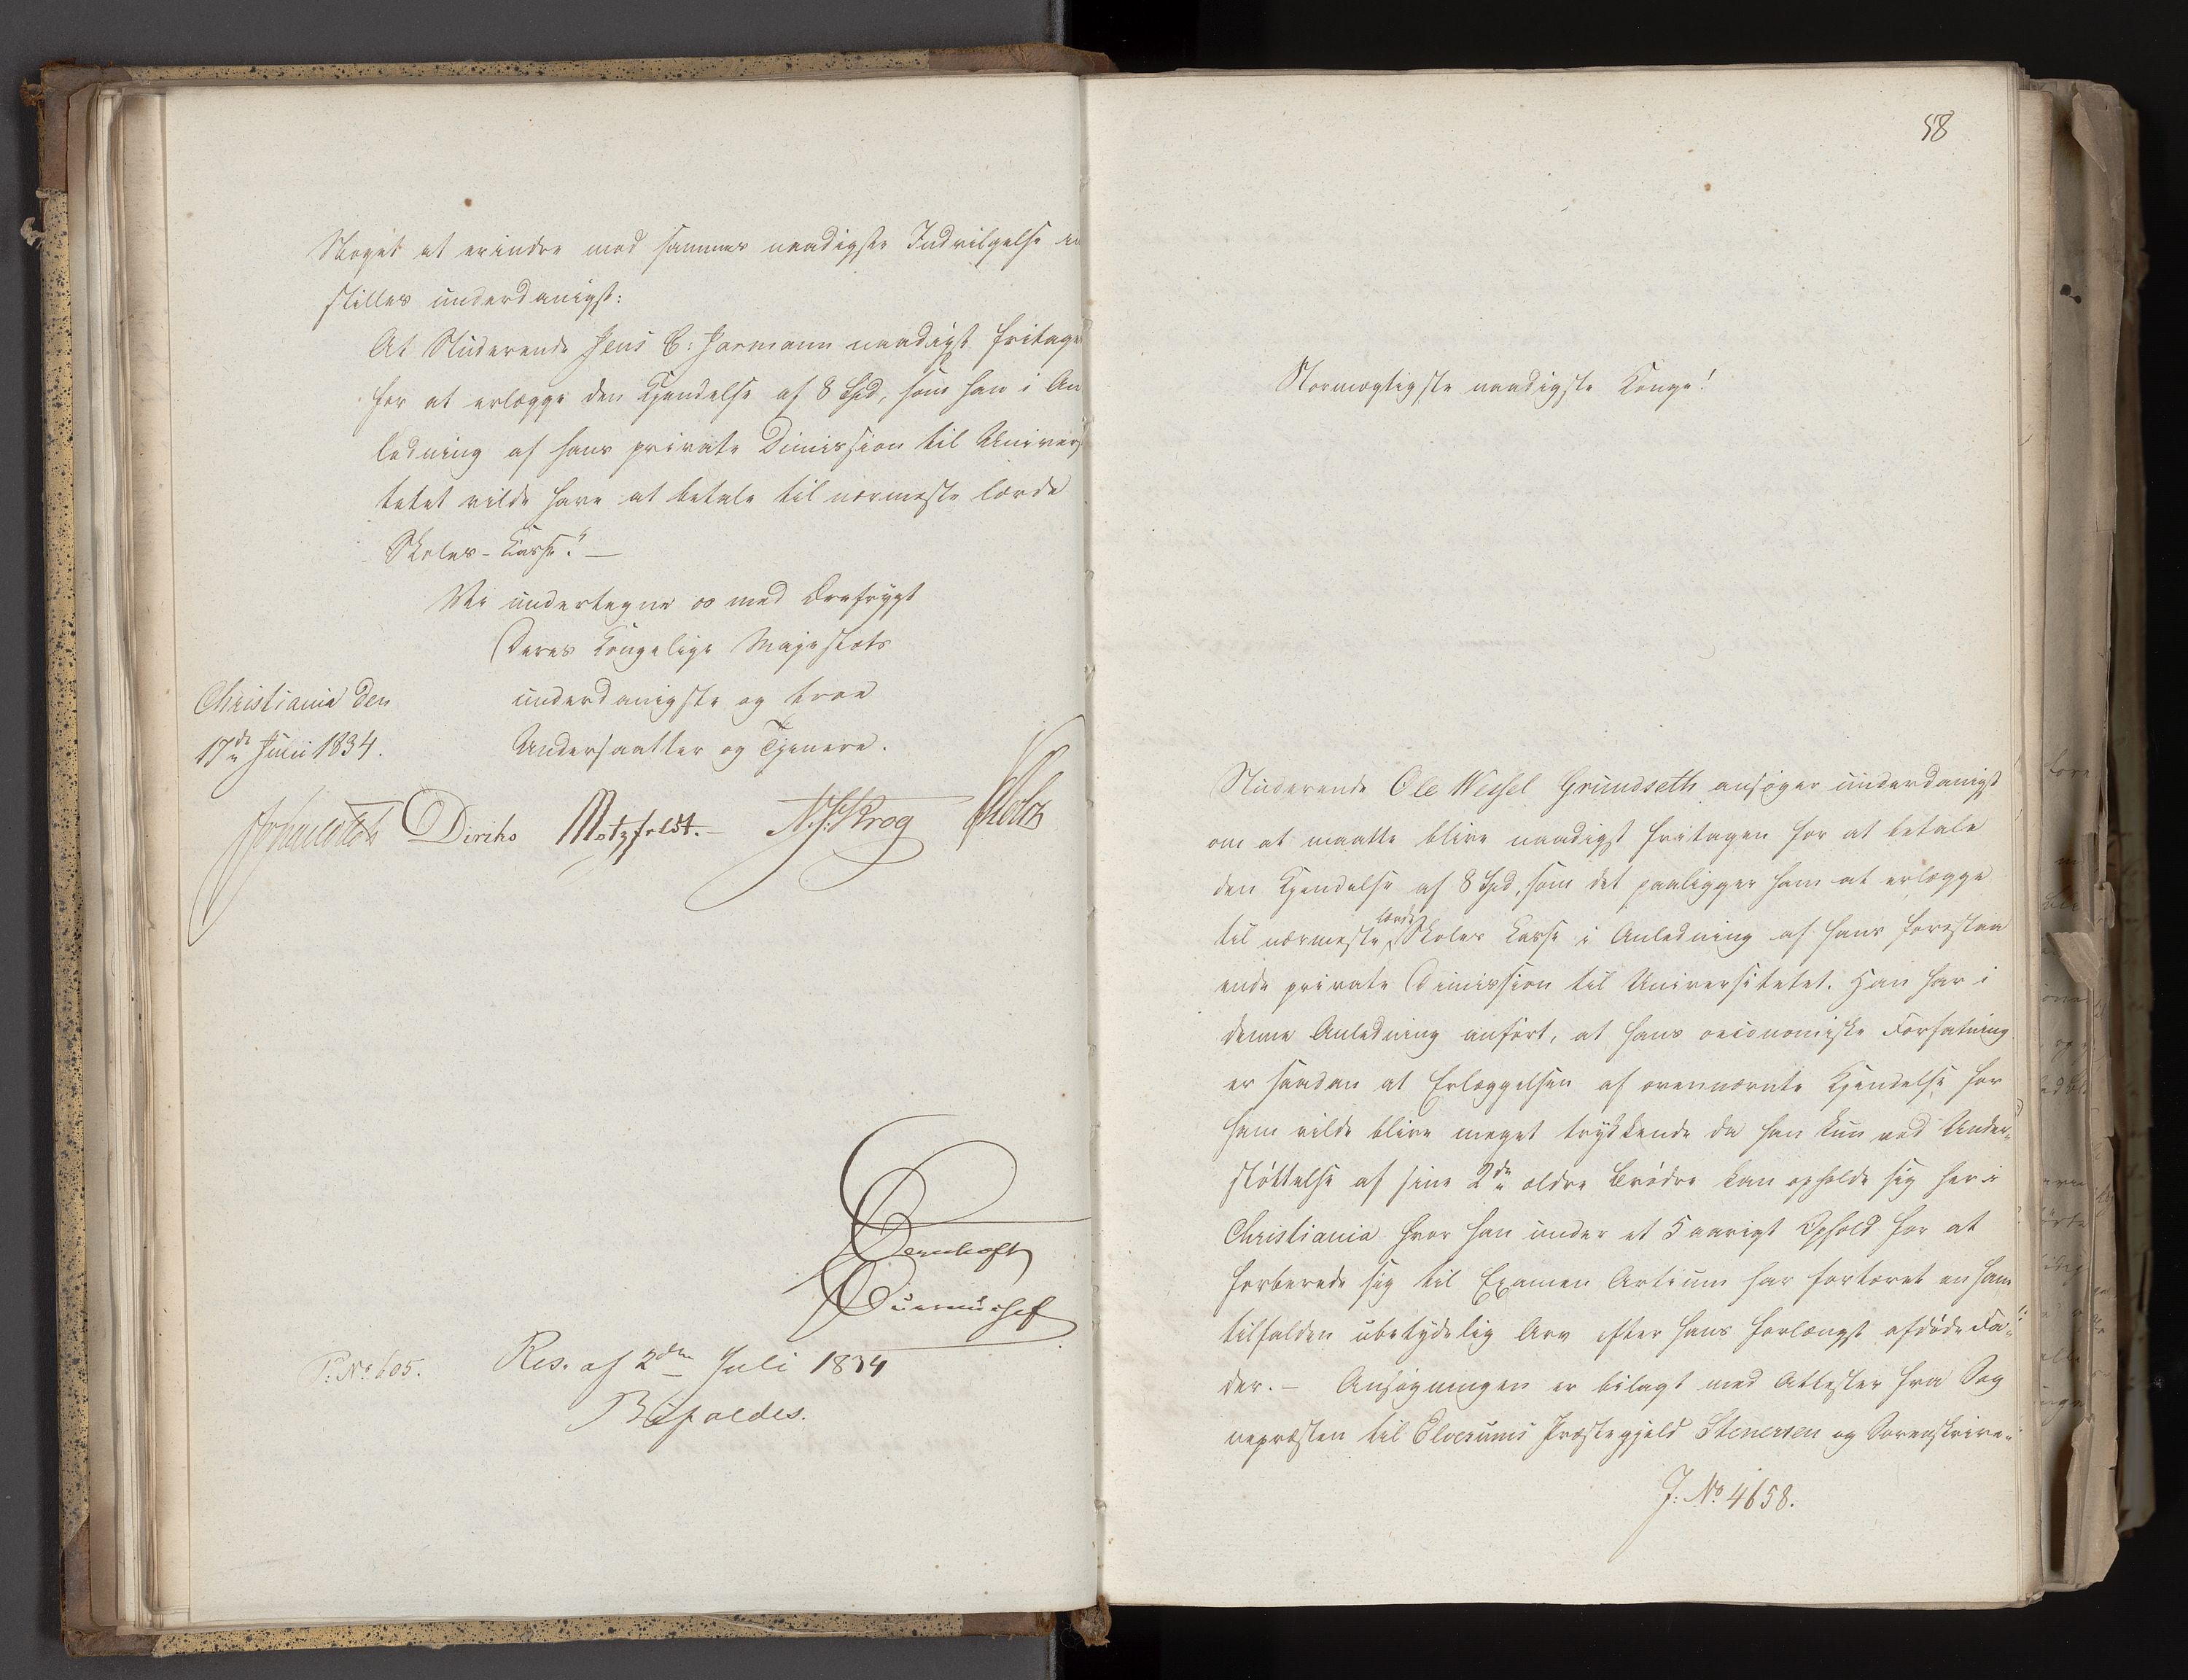 Noget at erindre mod sammes naadigste Indvilgelse in
stilles underdanigst:
At Studerende Jens C: Jarmann naadigst fritages
for at erlægge den Kjendelse af 8 Spd, som han i An
ledning af hans private Dimission til Univers
tetet vilde have at betale til nærmeste lærde
Skoles-Kasse."
Vi undertegne os med Ærefrygt
Deres Kongelige Majestæts
Christiania den
underdanigste og troe
17de Juni 1834.
Undersaatter og Tjenere.
Diriks Motzfeldt. N. J. Krog Holst
P: No 605.
Res. af 2den Juli 1834
Bifaldes.
58
Stormægtigste naadigste Konge!
Studerende Ole Wessel Grundseth ansøger underdanigst
om at maatte blive naadigst fritagen for at betale
den Kjendelse af 8 Spd, som det paaligger ham at erlægge
til nærmeste lærde Skoles Kasse i Anledning af hans forestaa
ende private Dimission til Universitetet. Han har i
denne Anledning anført, at hans oeconomiske Forfatning
er saadan at Erlæggelsen af ovennævnte Kjendelse for
ham vilde blive meget trykkende da han kun ved Under-
støttelse af sine 2de ældre Brødre kan opholde sig her i
Christiania hvor han under et 5 aarigt Ophold for at
forberede sig til Examen Artium har fortæret en ham
tilfalden ubetydelig Arv efter hans forlængst afdøde Fa-
der. – Ansøgningen er bilagt med Attester fra Sog
nepræsten til Elverums Præstegjeld Stenersen og Sorenskrive-
J: No 4658.